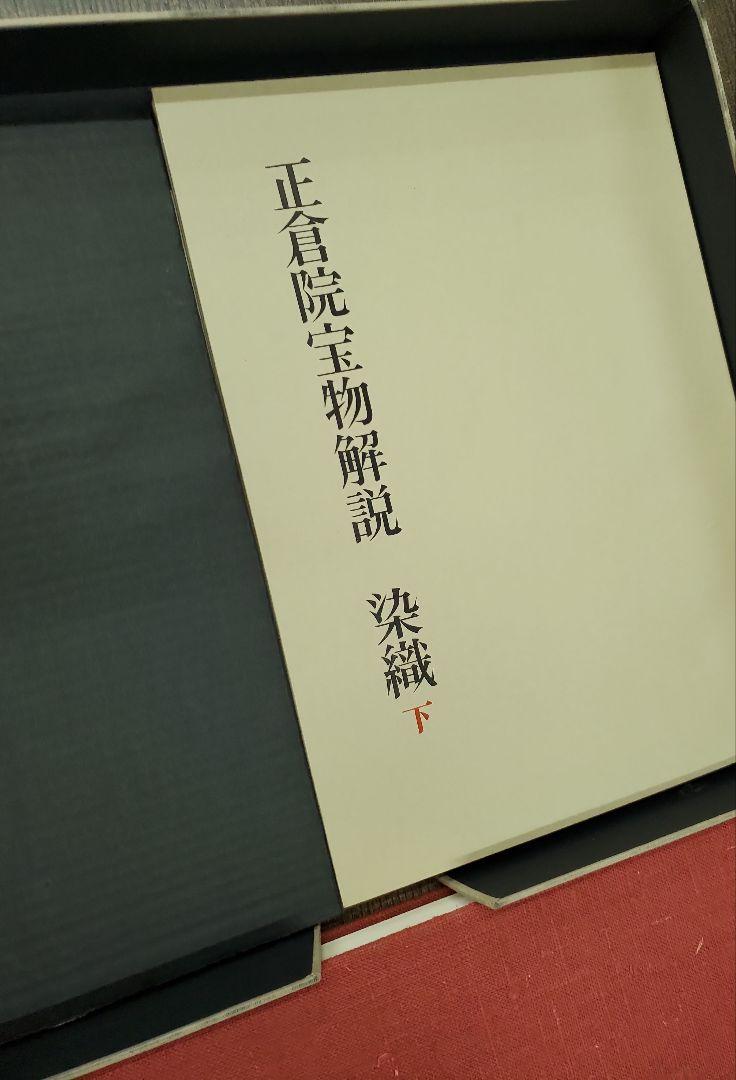 正倉院宝物解説 染織 下